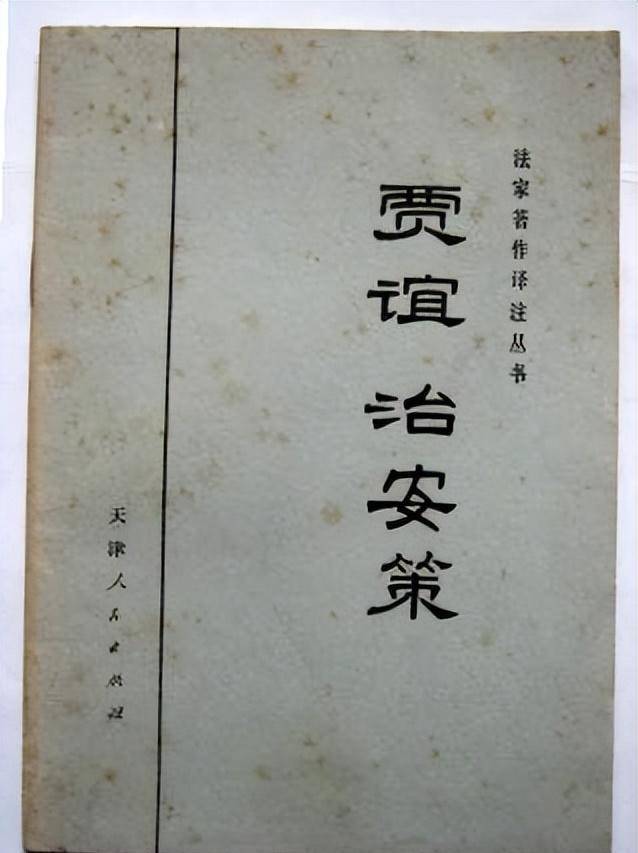 法家著作译注丛书
贾谊 治安策
天津人民出版社